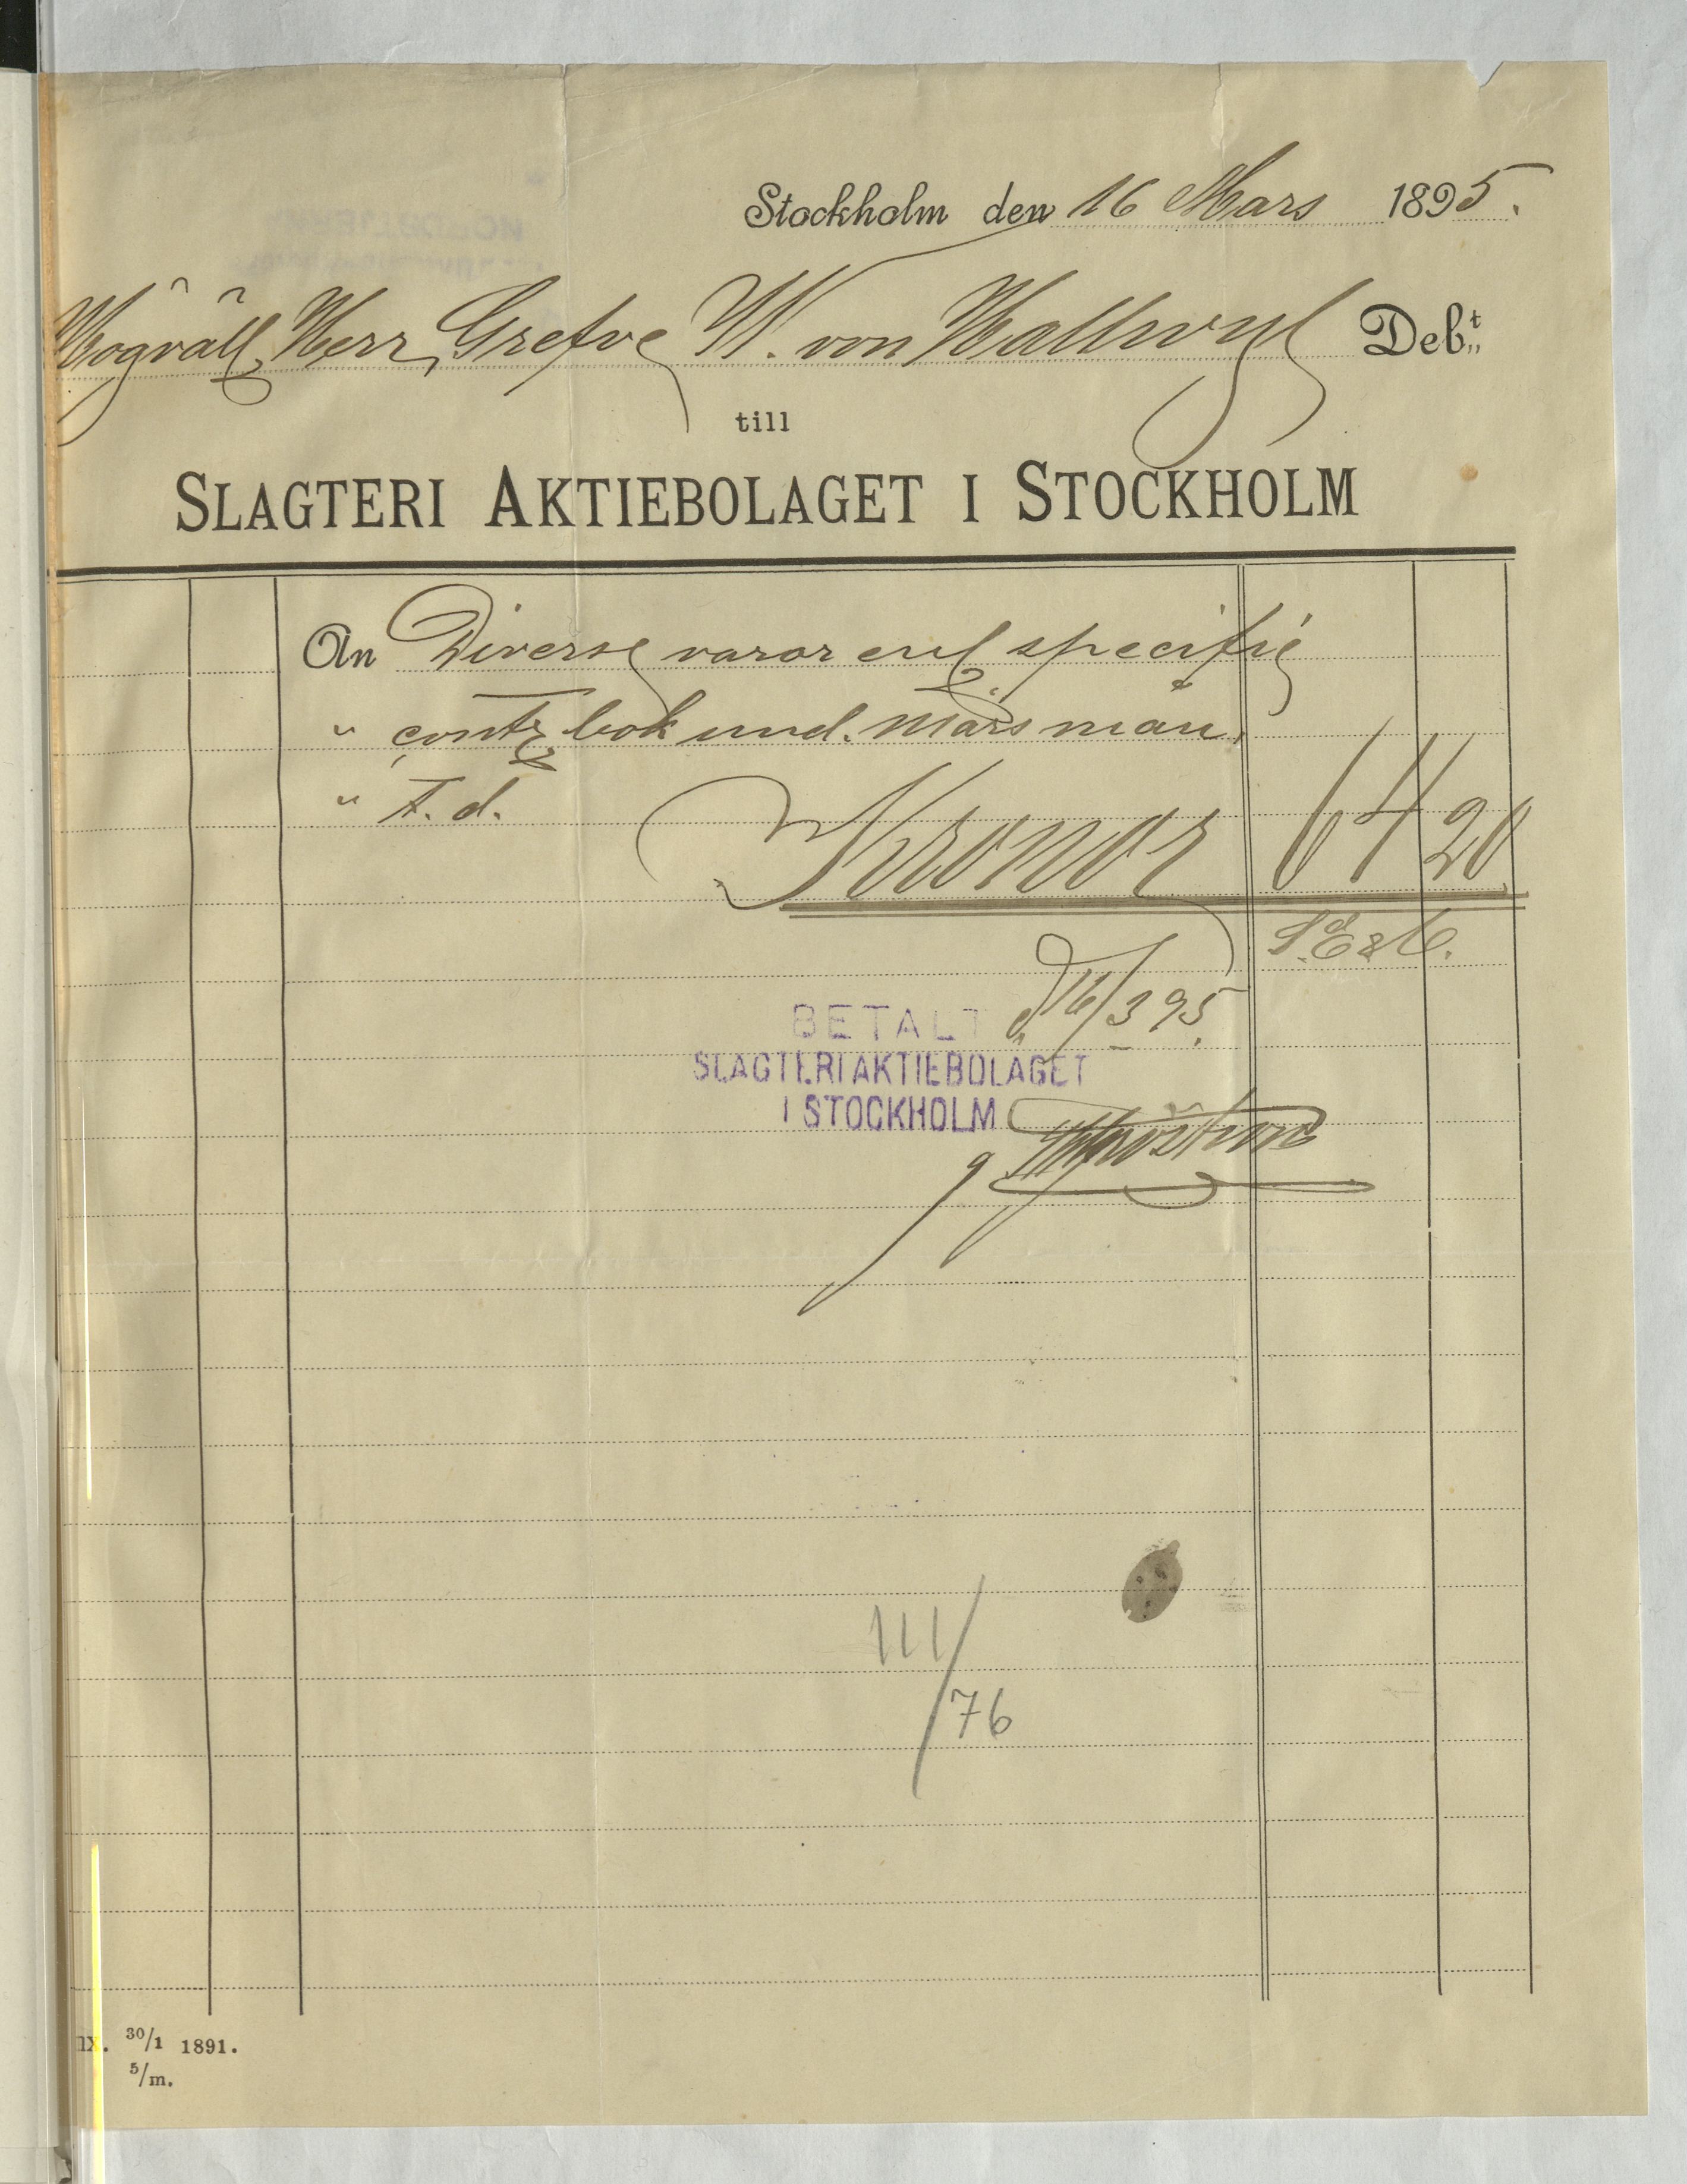 Stockholm den 16 Mars 1895.
Högväll Herr, Grefve W. von Hallwyl Debt
till
SLAGTERI AKTIEBOLAGET I STOCKHOLM
An Diverse varor enl specifie
" contr bok und. Mars mån.
" T. d. Kronor 64 20
S. E & O.
BETALT d 16/3 95.
SLAGTERIAKTIEBOLAGET
I STOCKHOLM
111/76
IX. 30/1 1891.
5/m.